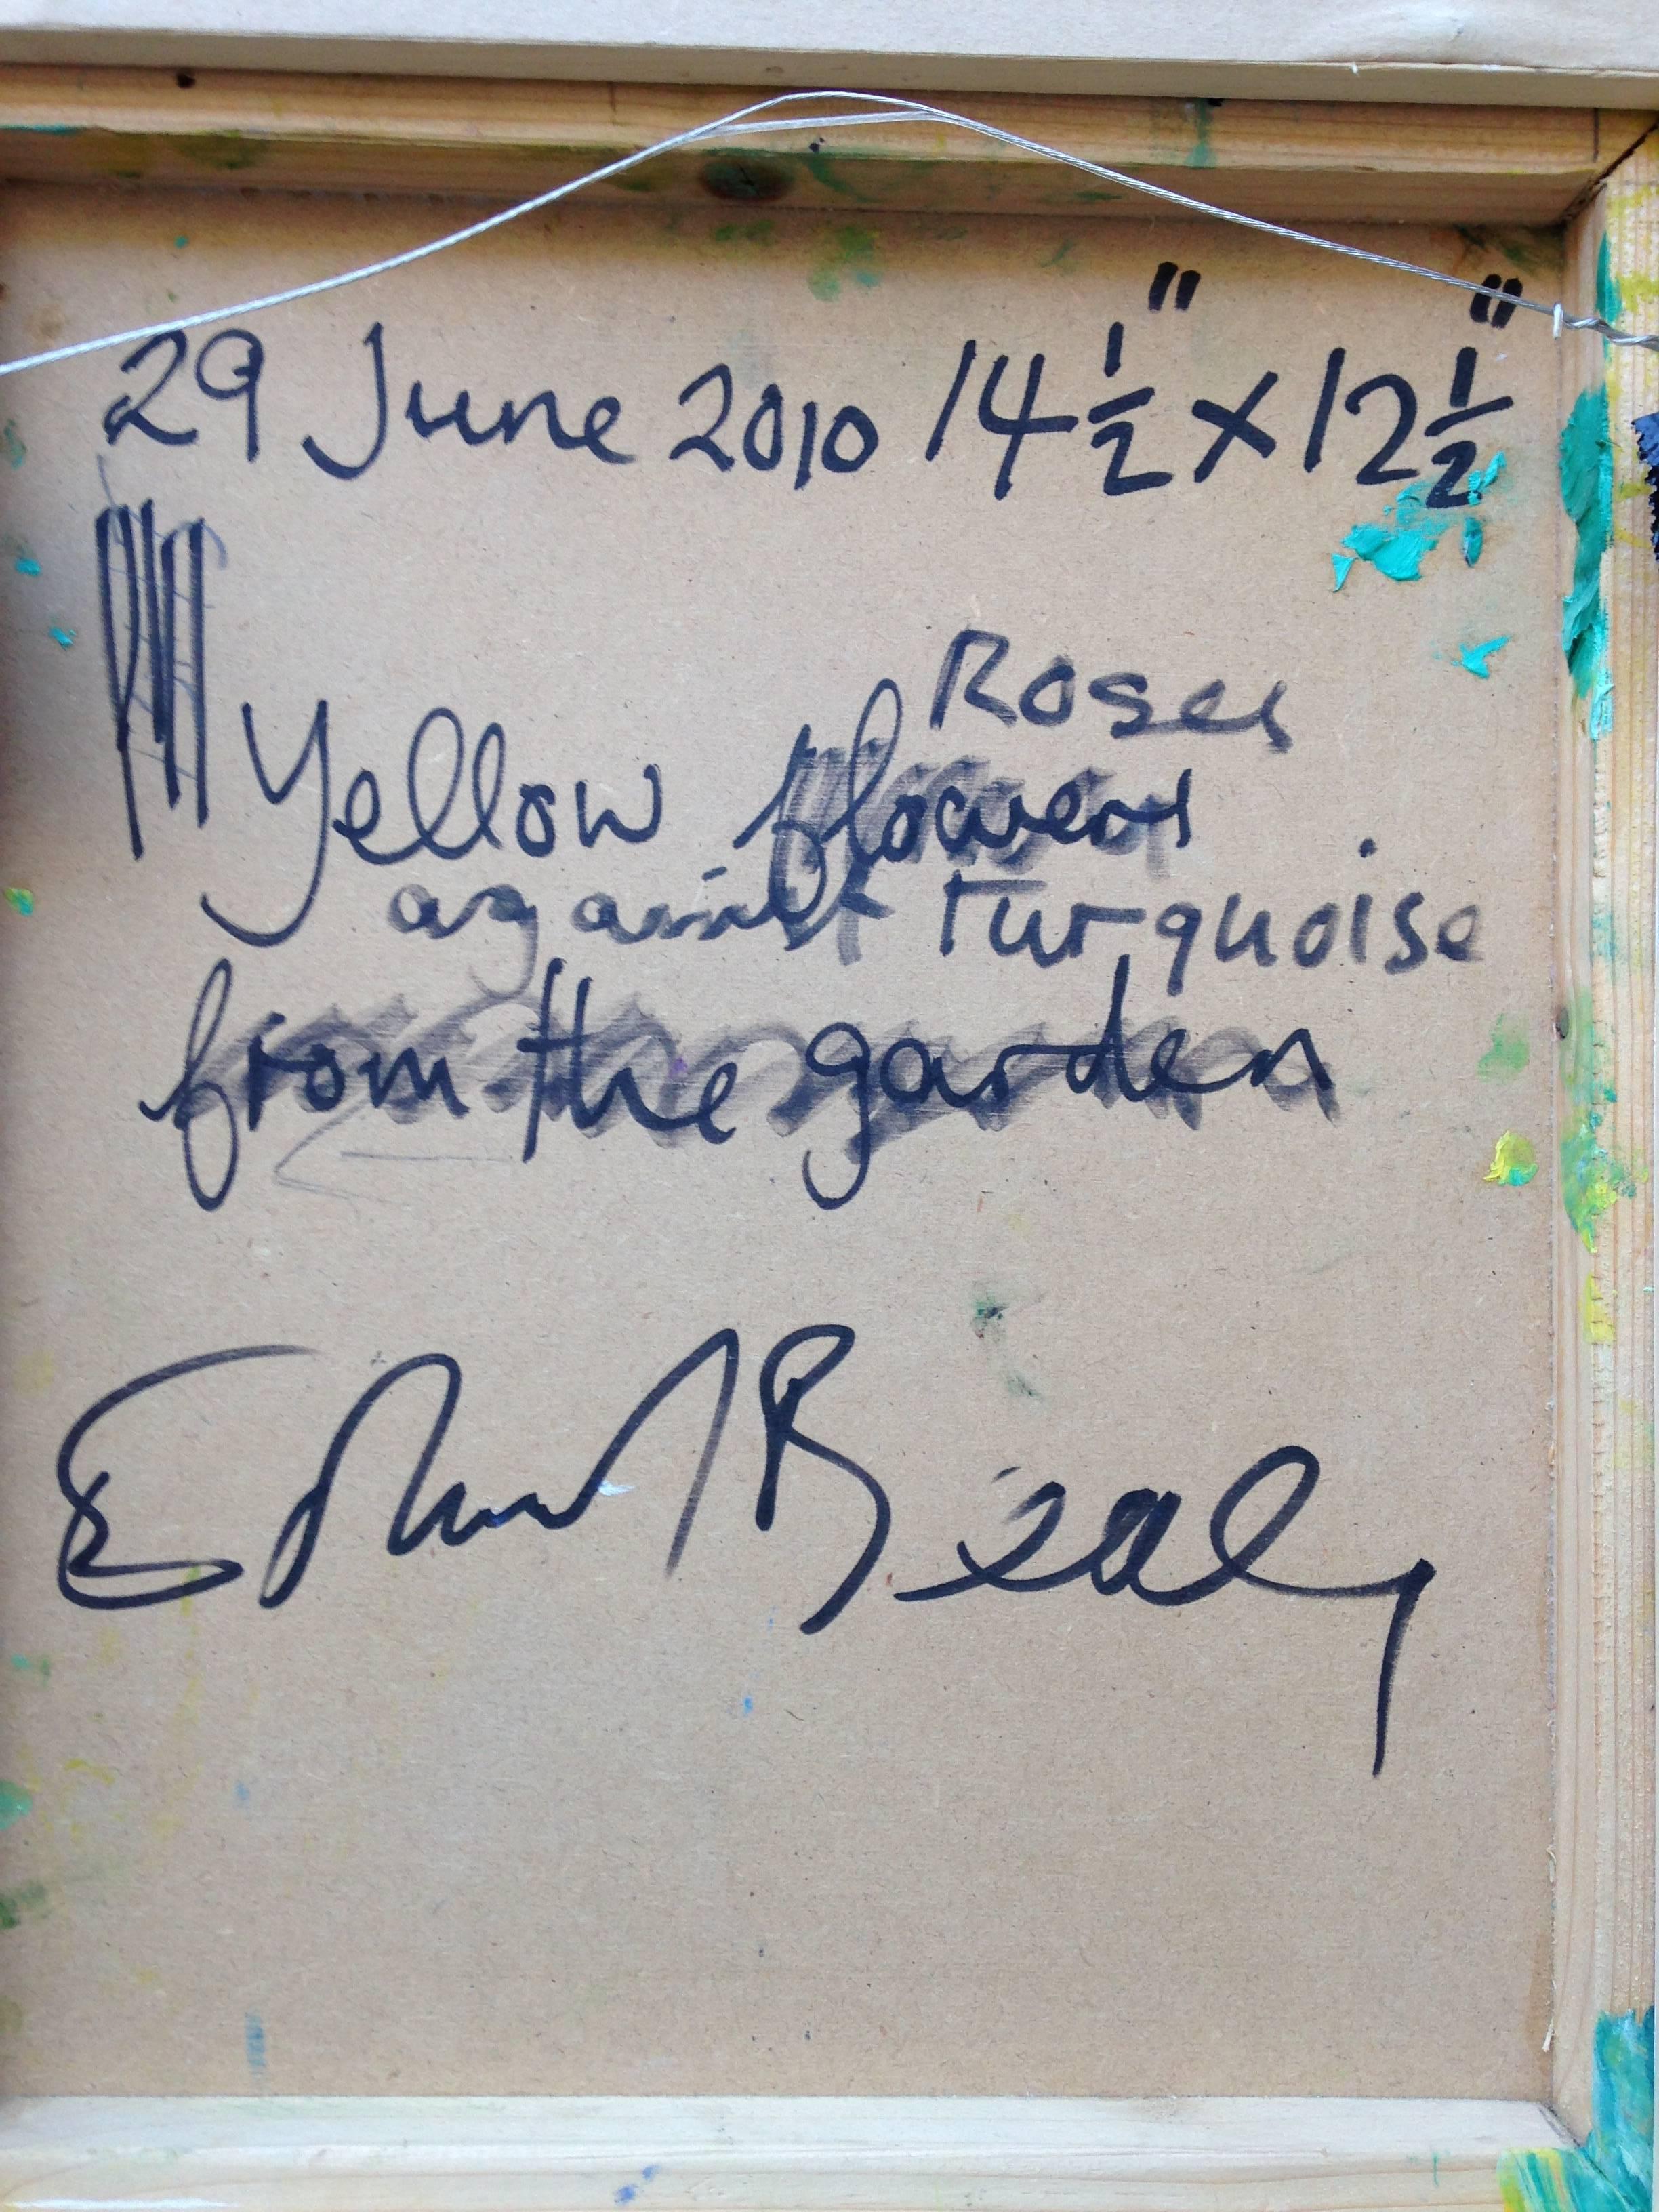 29 June 2010 14 1/2" x 12 1/2"
Roses
Yellow flowers
against Turquoise
from the garden
Beal